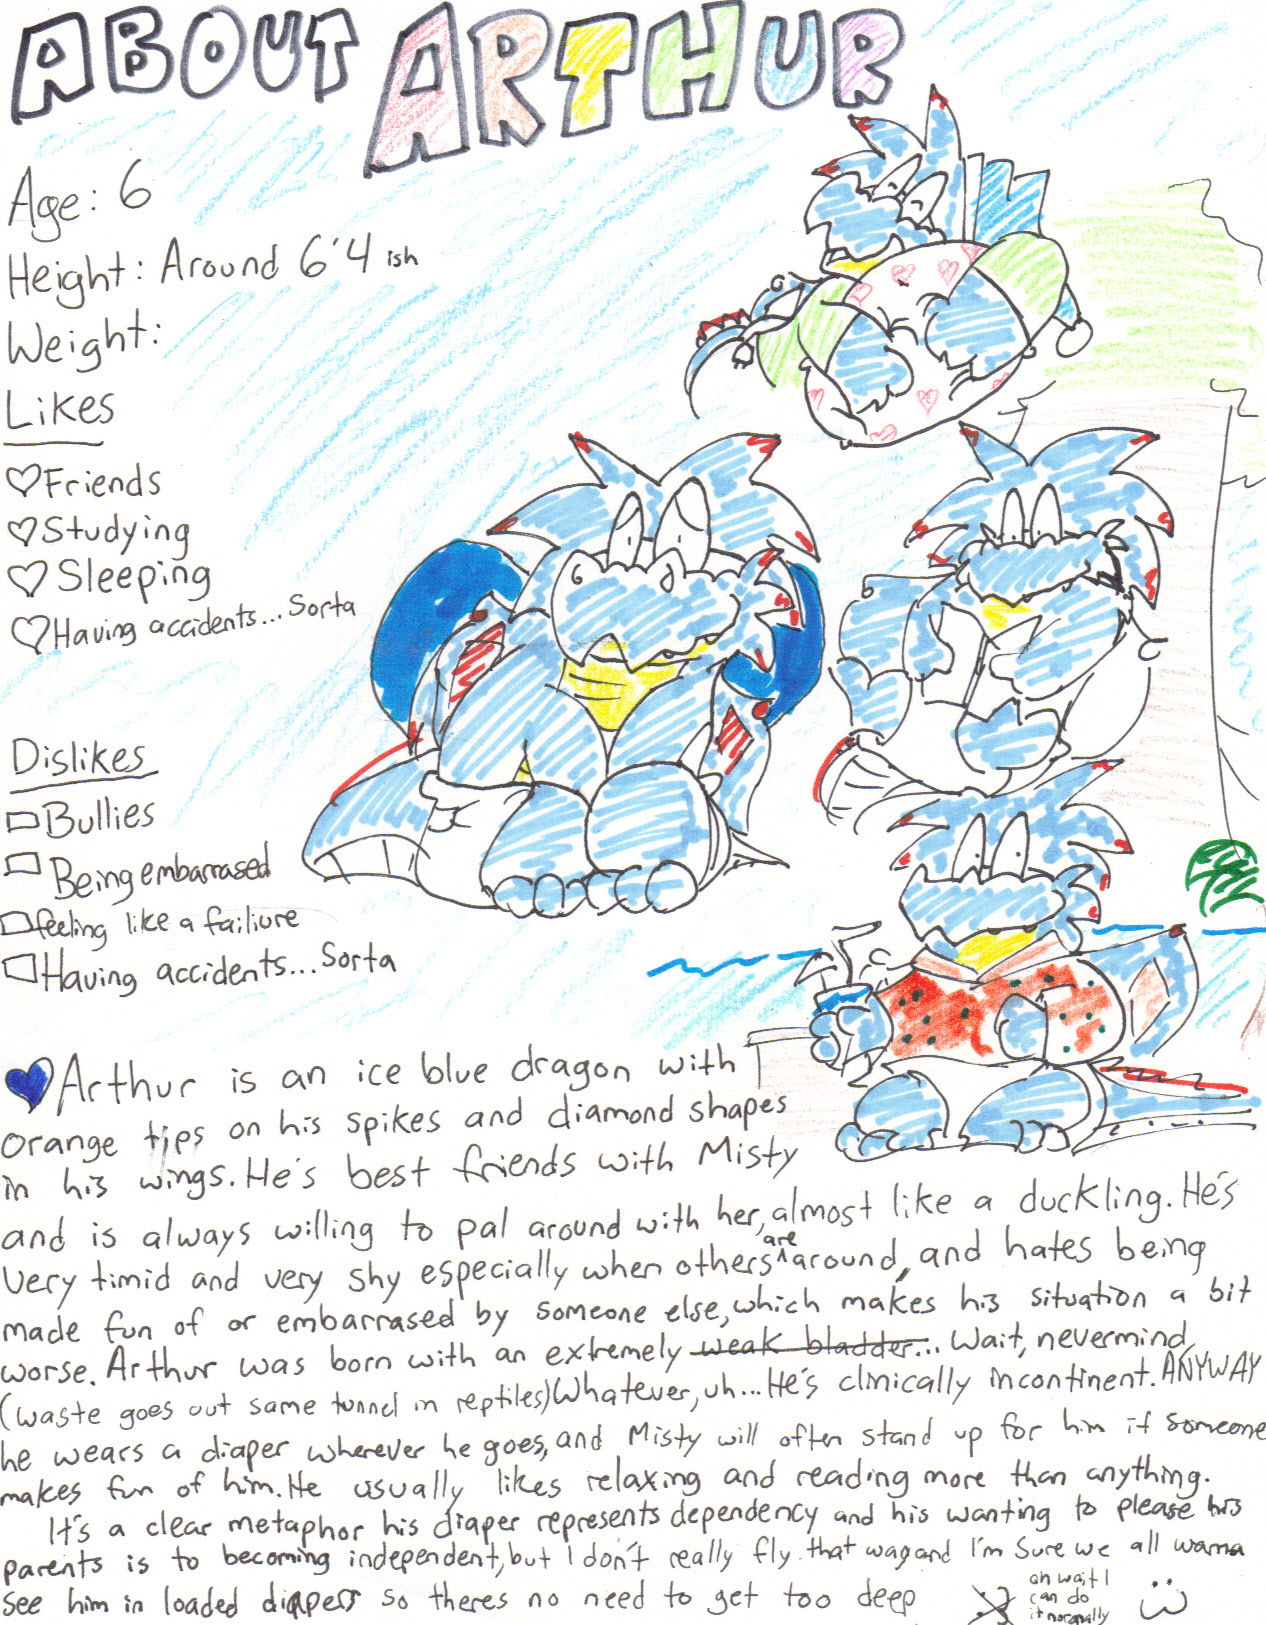 ABOUT ARTHUR
Age: 6
Height: Around 6'4 ish
Weight:
Likes
Friends
Studying
Sleeping
Having accidents... Sorta
Dislikes
Bullies
Being embarrased
feeling like a failiure
Having accidents... Sorta
Arthur is an ice blue dragon with
orange tips on his spikes and diamond shapes
in his wings. He's best friends with Misty
and is always willing to pal around with her, almost like a duckling. He's
very timid and very shy especially when others are around, and hates being
made fun of or embarrased by someone else, which makes his situation a bit
worse. Arthur was born with an extremely weak bladder... Wait, nevermind
(waste goes out same tunnel in reptiles) Whatever, uh... He's clinically incontinent. ANYWAY
he wears a diaper wherever he goes, and Misty will often stand up for him if someone
makes fun of him. He usually likes relaxing and reading more than anything.
It's a clear metaphor his diaper represents dependency and his wanting to please his
parents is to becoming independent, but I don't really fly that way and I'm sure we all wanna
see him in loaded diapers so theres no need to get too deep
oh wait I
can do
it normally